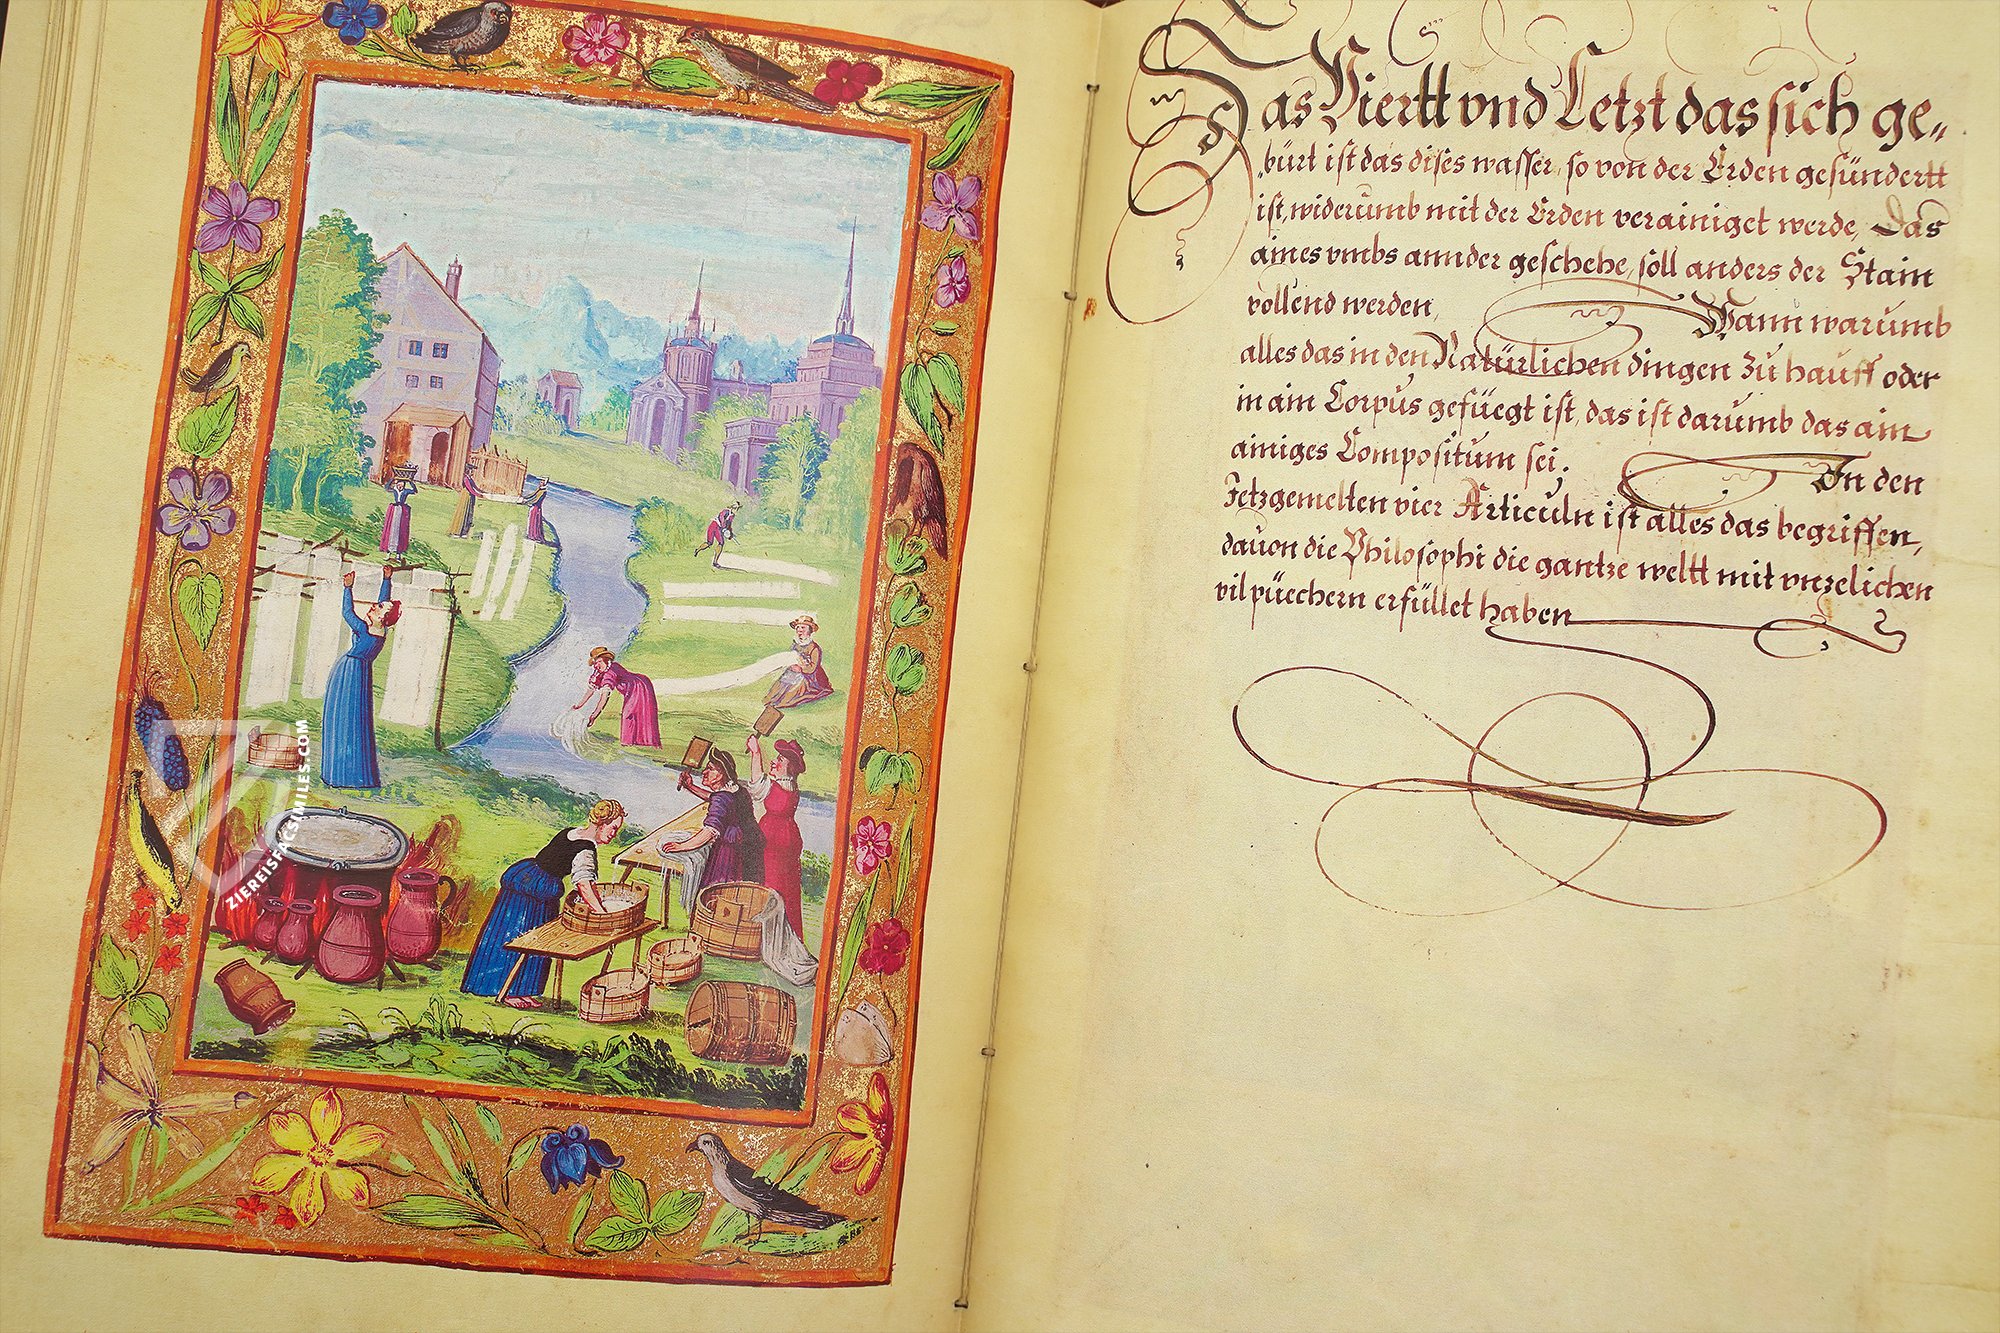 ZIEREISFACSIMILES.COM
Das Viertt vnd Letzt das sich ge„
bürt ist das dises wasser, so von der Erden gesündertt
ist, widerumb mit der Erden verainiget werde, Das
aines vmbs annder geschehe, soll anders der Stain
vollend werden, Wann warumb
alles das in den Natürlichen dingen zu hauff oder
in ain Corpus gefüegt ist, das ist darumb das ain
ainiges Compositum sei. In den
Jetzgemelten vier Articuln ist alles das begriffen,
dauon die Philosophi die gantze weltt mit vnzelichen
vil püechern erfüllet haben